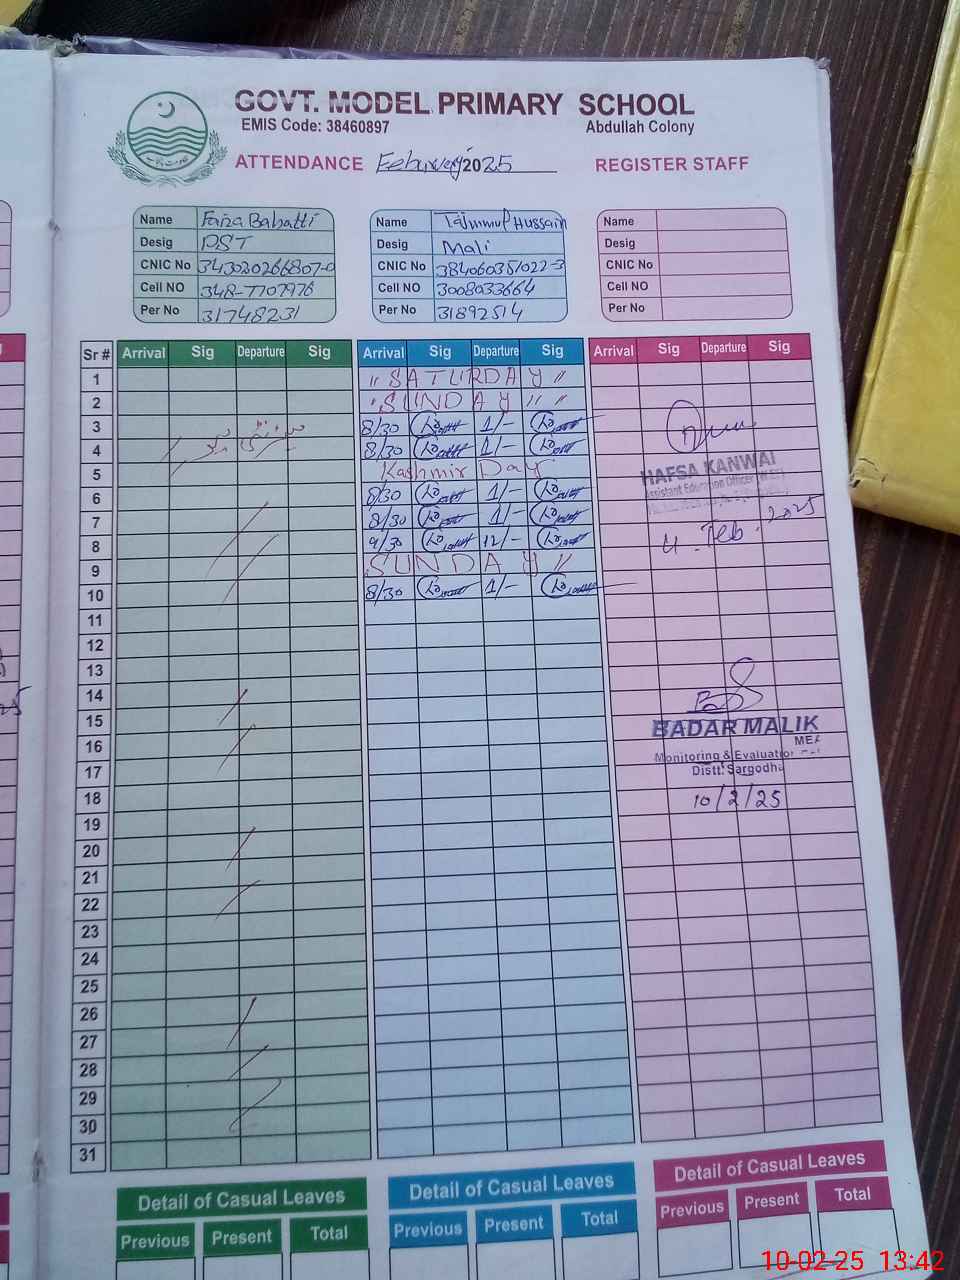 GOVT. MODEL PRIMARY SCHOOL
EMIS Code: 38460897 Abdullah Colony
ATTENDANCE February 2025 REGISTER STAFF
Name Faiza Bahatti
Desig PST
CNIC No 343020266807-0
Cell NO 348-7707976
Per No 31748231
Name Tajmmul Hussain
Desig Mali
CNIC No 384060351022-3
Cell NO 3008033664
Per No 31892514
Name
Desig
CNIC No
Cell NO
Per No
Sr # Arrival Sig Departure Sig Arrival Sig Departure Sig Arrival Sig Departure Sig
1 "SATURDAY"
2 "SUNDAY"
3 8/30 1/-
4 8/30 1/-
5 Kashmir Day
6 8/30 1/-
7 8/30 1/-
8 9/30 12/-
9 SUNDAY"
10 8/30 1/-
11
12
13
14
15
16
17
18
19
20
21
22
23
24
25
26
27
28
29
30
31
HAFSA KANWAL
Assistant Education Officer
4. Feb. 2025
BADAR MALIK
MEA
Monitoring & Evaluation
Distt: Sargodha
10/2/25
Detail of Casual Leaves
Previous Present Total
Detail of Casual Leaves
Previous Present Total
Detail of Casual Leaves
Previous Present Total
10-02-25 13:42